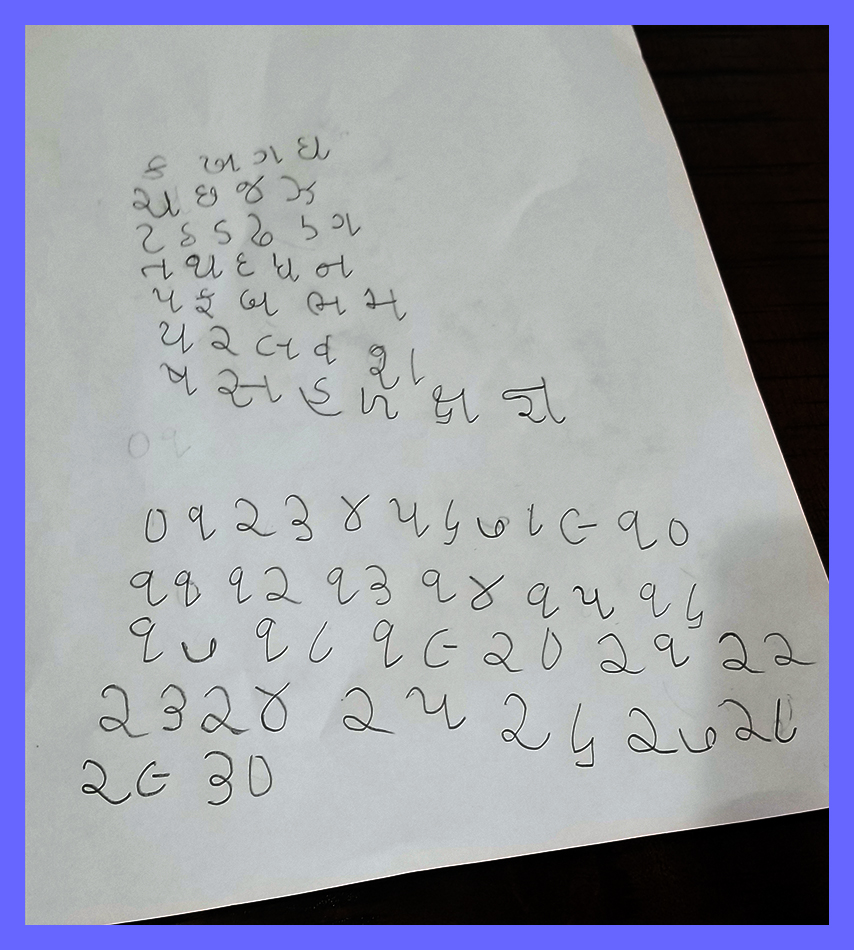 ક ખ ગ ઘ
ચ છ જ ઝ
ટ ઠ ડ ઢ ડ ગ
ત થ દ ધ ન
પ ફ બ ભ મ
ય ર લ વ શ
ષ સ હ ળ ક્ષ જ્ઞ
૦૧
૦ ૧ ૨ ૩ ૪ ૫ ૬ ૭ ૮ ૯ ૧૦
૧૧ ૧૨ ૧૩ ૧૪ ૧૫ ૧૬
૧૭ ૧૮ ૧૯ ૨૦ ૨૧ ૨૨
૨૩ ૨૪ ૨૫ ૨૬ ૨૭ ૨૮
૨૯ ૩૦